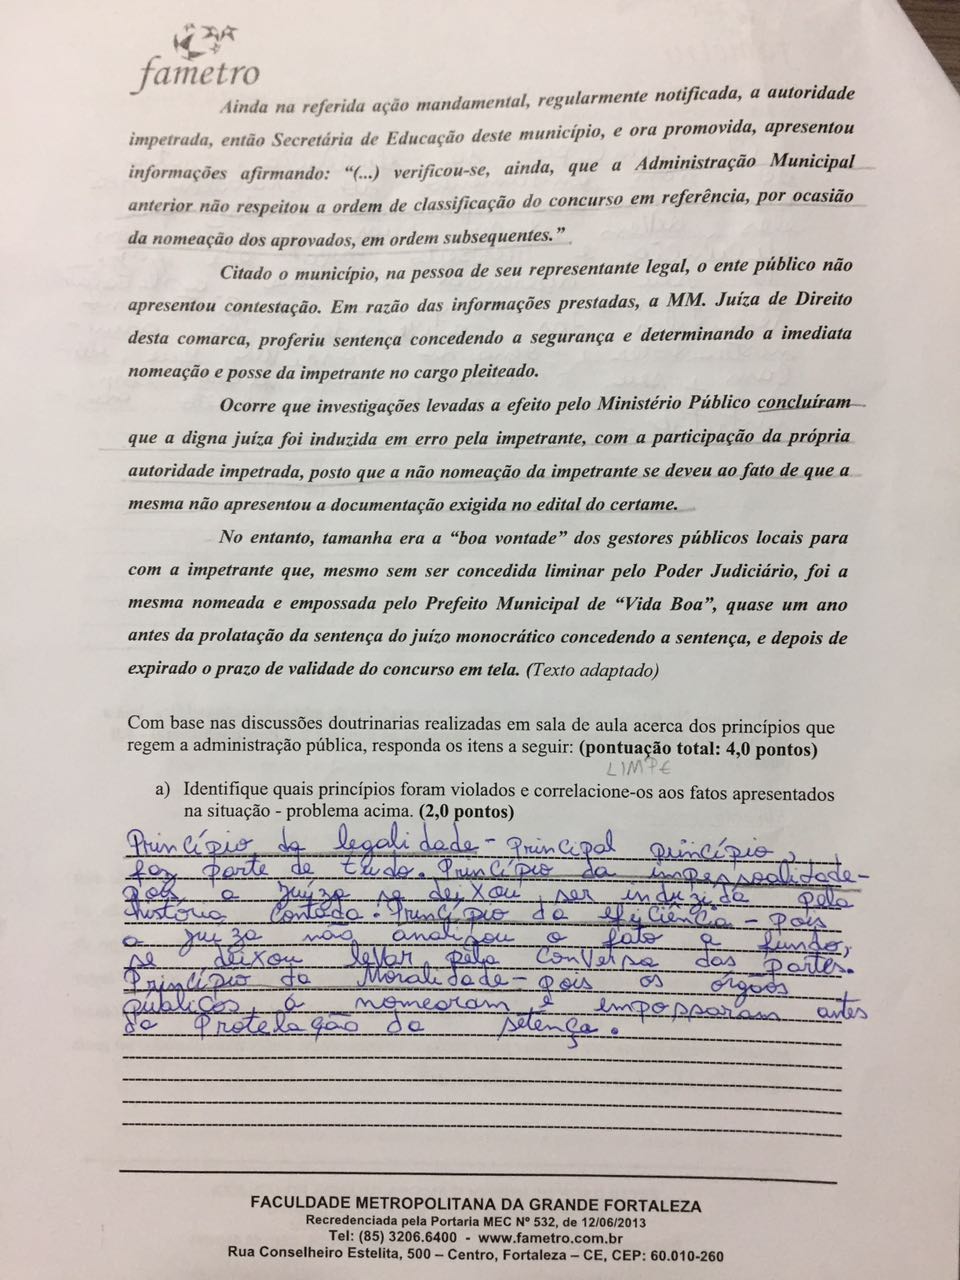 fametro
Ainda na referida ação mandamental, regularmente notificada, a autoridade
impetrada, então Secretária de Educação deste município, e ora promovida, apresentou
informações afirmando: “(...) verificou-se, ainda, que a Administração Municipal
anterior não respeitou a ordem de classificação do concurso em referência, por ocasião
da nomeação dos aprovados, em ordem subsequentes.”
Citado o município, na pessoa de seu representante legal, o ente público não
apresentou contestação. Em razão das informações prestadas, a MM. Juíza de Direito
desta comarca, proferiu sentença concedendo a segurança e determinando a imediata
nomeação e posse da impetrante no cargo pleiteado.
Ocorre que investigações levadas a efeito pelo Ministério Público concluíram
que a digna juíza foi induzida em erro pela impetrante, com a participação da própria
autoridade impetrada, posto que a não nomeação da impetrante se deveu ao fato de que a
mesma não apresentou a documentação exigida no edital do certame.
No entanto, tamanha era a “boa vontade” dos gestores públicos locais para
com a impetrante que, mesmo sem ser concedida liminar pelo Poder Judiciário, foi a
mesma nomeada e empossada pelo Prefeito Municipal de “Vida Boa”, quase um ano
antes da prolatação da sentença do juízo monocrático concedendo a sentença, e depois de
expirado o prazo de validade do concurso em tela. (Texto adaptado)
Com base nas discussões doutrinarias realizadas em sala de aula acerca dos princípios que
regem a administração pública, responda os itens a seguir: (pontuação total: 4,0 pontos)
LIMPE
a) Identifique quais princípios foram violados e correlacione-os aos fatos apresentados
na situação - problema acima. (2,0 pontos)
Princípio da legalidade - principal princípio,
faz parte de tudo. Princípio da impessoalidade -
pois a juíza se deixou ser induzida pela
história contada. Princípio da eficiência - pois
a juíza não analizou o fato a fundo,
se deixou levar pela conversa das partes.
Princípio da Moralidade - pois os órgãos
públicos a nomearam e emposparam antes
da protelação da setença.
FACULDADE METROPOLITANA DA GRANDE FORTALEZA
Recredenciada pela Portaria MEC Nº 532, de 12/06/2013
Tel: (85) 3206.6400 - www.fametro.com.br
Rua Conselheiro Estelita, 500 – Centro, Fortaleza – CE, CEP: 60.010-260